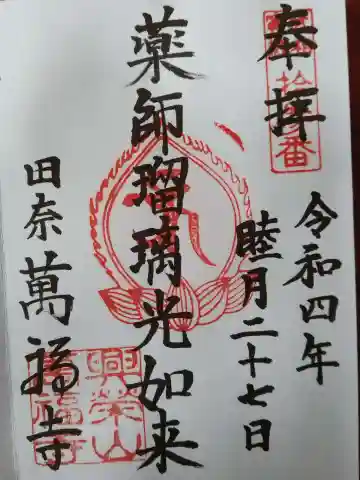 奉拝
令和四年
睦月二十七日
薬師瑠璃光如来
田奈萬福寺
興榮山
萬福寺